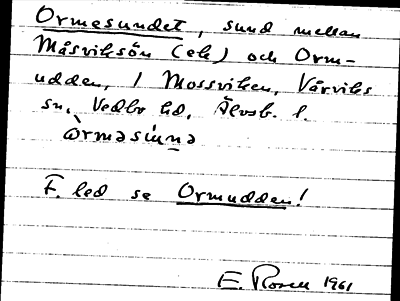 Ormesundet, sund mellan
Måsviksön (ek) och Orm-
udden, i Mossviken, Vårviks
sn, Vedbo hd, Älvsb. l.
òrməsúnə
F. led se Ormudden!
E. Rosell 1961